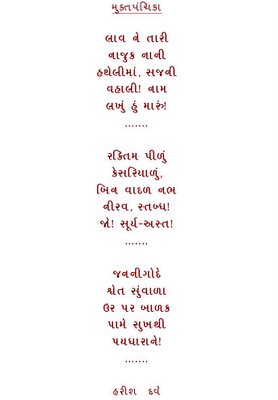 મુક્તપંચિકા
લાવ ને તારી
નાજુક નાની
હથેલીમાં, સજની
વહાલી! નામ
લખું હું મારું!
.......
રક્તિમ પીળું
કેસરિયાળું,
બિન વાદળ નભ
નીરવ, સ્તબ્ધ!
જો! સૂર્ય-અસ્ત!
.......
જનનીગોદે
શ્વેત સુંવાળા
ઉર પર બાળક
પામે સુખથી
પયધારાને!
.......
હરીશ દવે